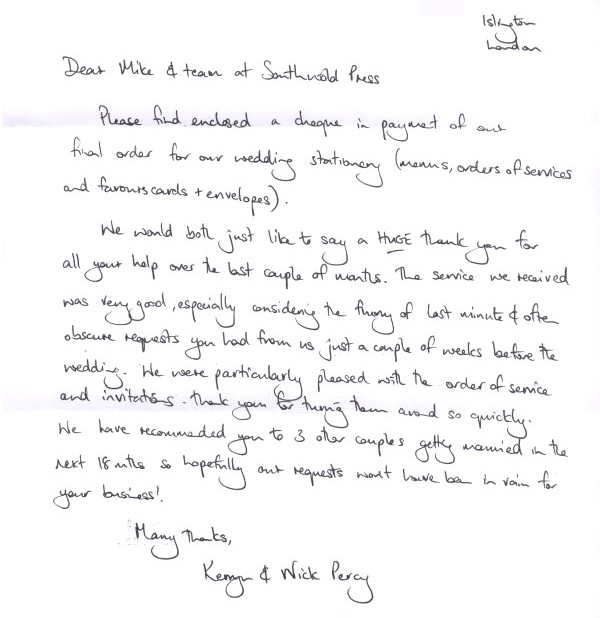 Islington
London
Dear Mike & team at Southwold Press
Please find enclosed a cheque in payment of our
final order for our wedding stationery (menus, orders of services
and favours cards + envelopes).
We would both just like to say a HUGE thank you for
all your help over the last couple of months. The service we received
was very good, especially considering the flurry of last minute & often
obscure requests you had from us just a couple of weeks before the
wedding. We were particularly pleased with the order of service
and invitations. Thank you for turning them around so quickly.
We have recommended you to 3 other couples getting married in the
next 18 mths so hopefully our requests won't have been in vain for
your business!
Many Thanks,
& Nick Percy